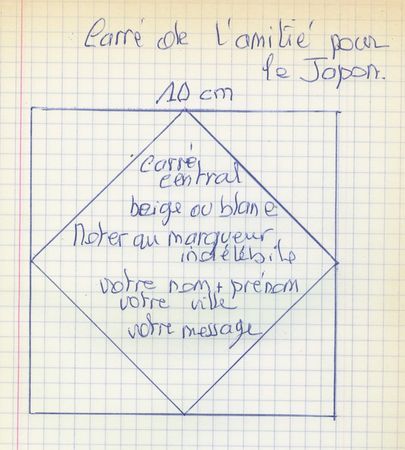 Carré de l'amitié pour
le Japon.
10 cm
Carré
central
beige ou blanc
Noter au marqueur
indélébile
votre nom + prénom
votre ville
votre message